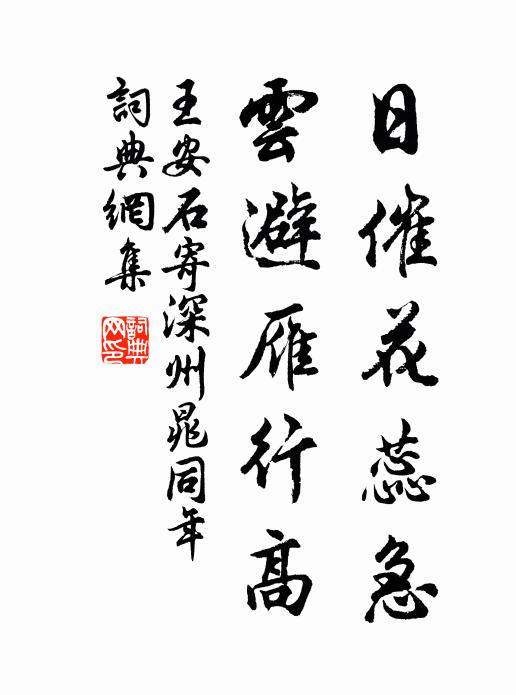 日催花蕊急
雲避雁行高
王安石寄深州晁同年
詞典網集
詞典
网印